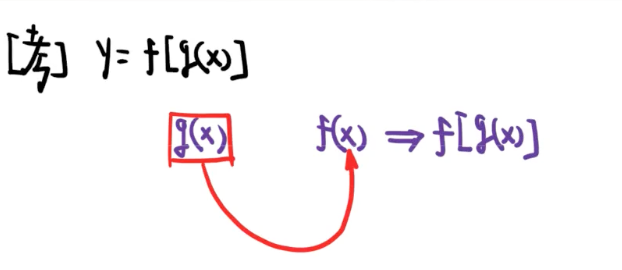 [考] y = f[g(x)]
g(x) f(x) ⇒ f[g(x)]